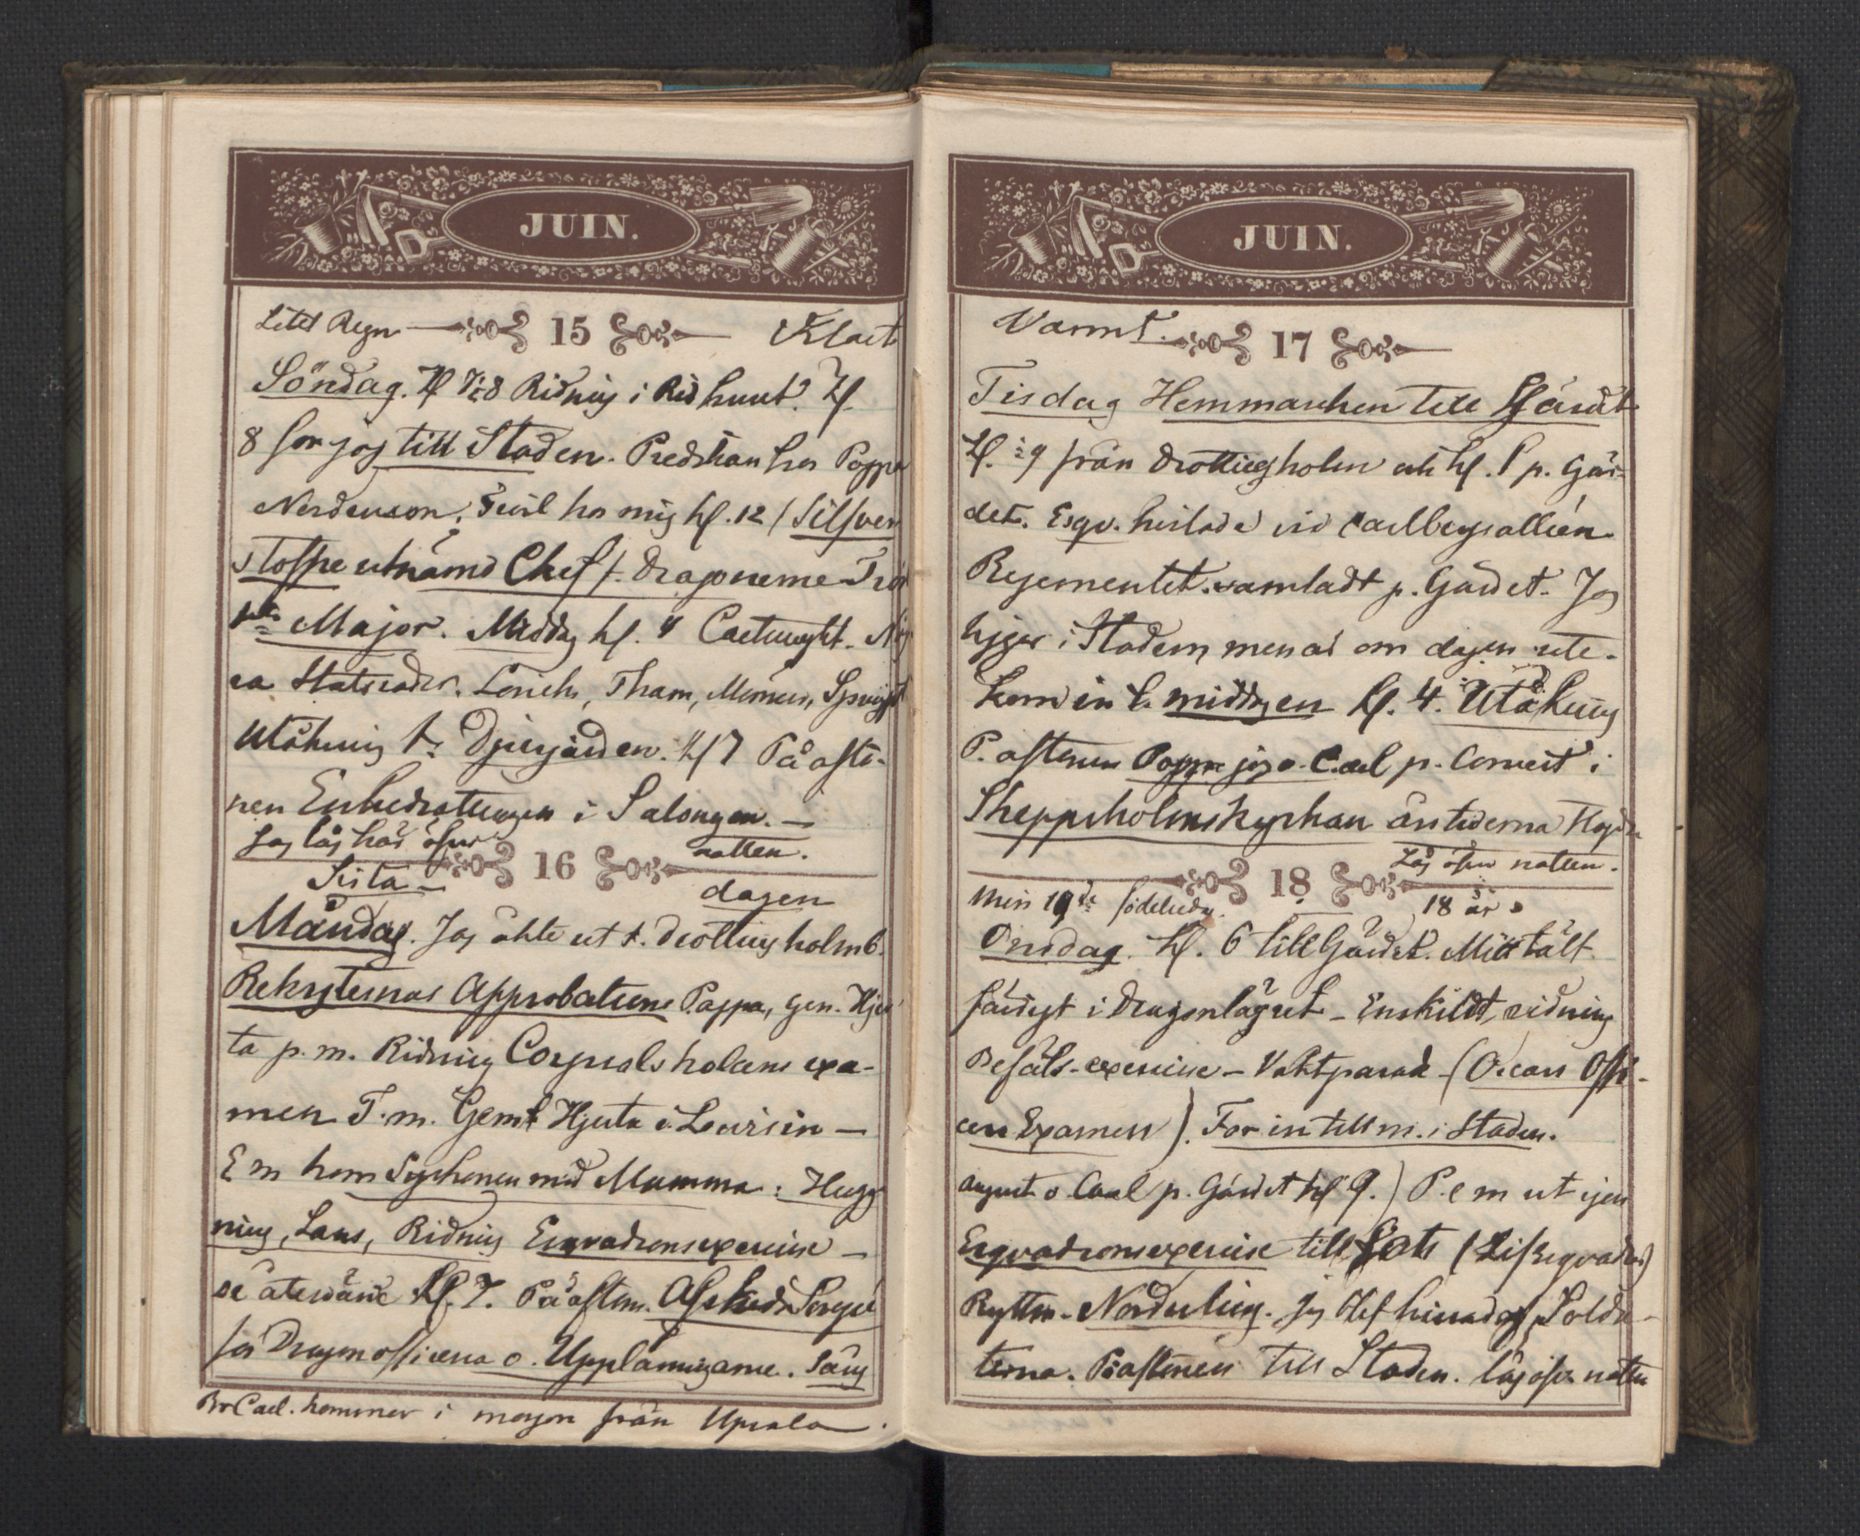 JUIN.
Litet Regn 15 Klart
Söndag. Kl ½8 Ridning i Ridhuset. Kl
8 for jag till Staden. Predikan hos Pappa
Nordenson. Kl. 12 / Silfver
stolpe utnämd Chef f. dragonerne
Major. Middag kl. 4 Cartwright. Någ
ra Statsråder. Lerich, Tham, Sjovist
Utåkning t. Djurgården. Kl 7 På afto-
nen i Salongen. —
Jag låg här öfver natten.
16
Sista — dagen
Måndag. Jag åkte ut t. Drottningholm 6.
Rekryternas Approbations Pappa, Gen. Hjer
ta p. m. Ridning Corpralskolans exa-
men F. m. Gen. Hjerta
E m kom Syskonen med Mamma: Hugg
ning, Lans, Ridning Esqvadronsexercise —
de återvände Kl. 7. På aftonen. Afskeds
för Dragonofficerna o. Upplänningarne. Sång
Br Carl. kommer i morgon från Upsala.
JUIN.
Varmt. 17
Tisdag Hemmarchen till
Kl. ½9 från Drottningholm och kl. 1 p. Gär-
det. Esqv. hvilade vid Carlbergsalléen
Regementet samladt p. Gärdet. Jag
ligger i Staden, men är om dagen ute.
Kom in t. middagen Kl. 4. Utåkning
P. aftonen Pappa jag o. Carl p. Concert i
Skeppsholmskyrkan
Låg öfver natten.
18
Min 19de födelsedag. 18 år
Onsdag. Kl. 6 till Gärdet. Mitt tält
färdigt i Dragonlägret — Enskildt, ridning
Befäls-exercise — Vaktparad — (Oscars Offi-
cers Examen). For in till m. i Staden.
August o Carl p. Gärdet kl 9.) P. e m ut igen
Esqvadronsexercise till fots (Lifsqvadr)
Ryttm. Nordenberg. Jag blef hurrad af Solda-
terna. På aftonen till Staden. låg öfver natten